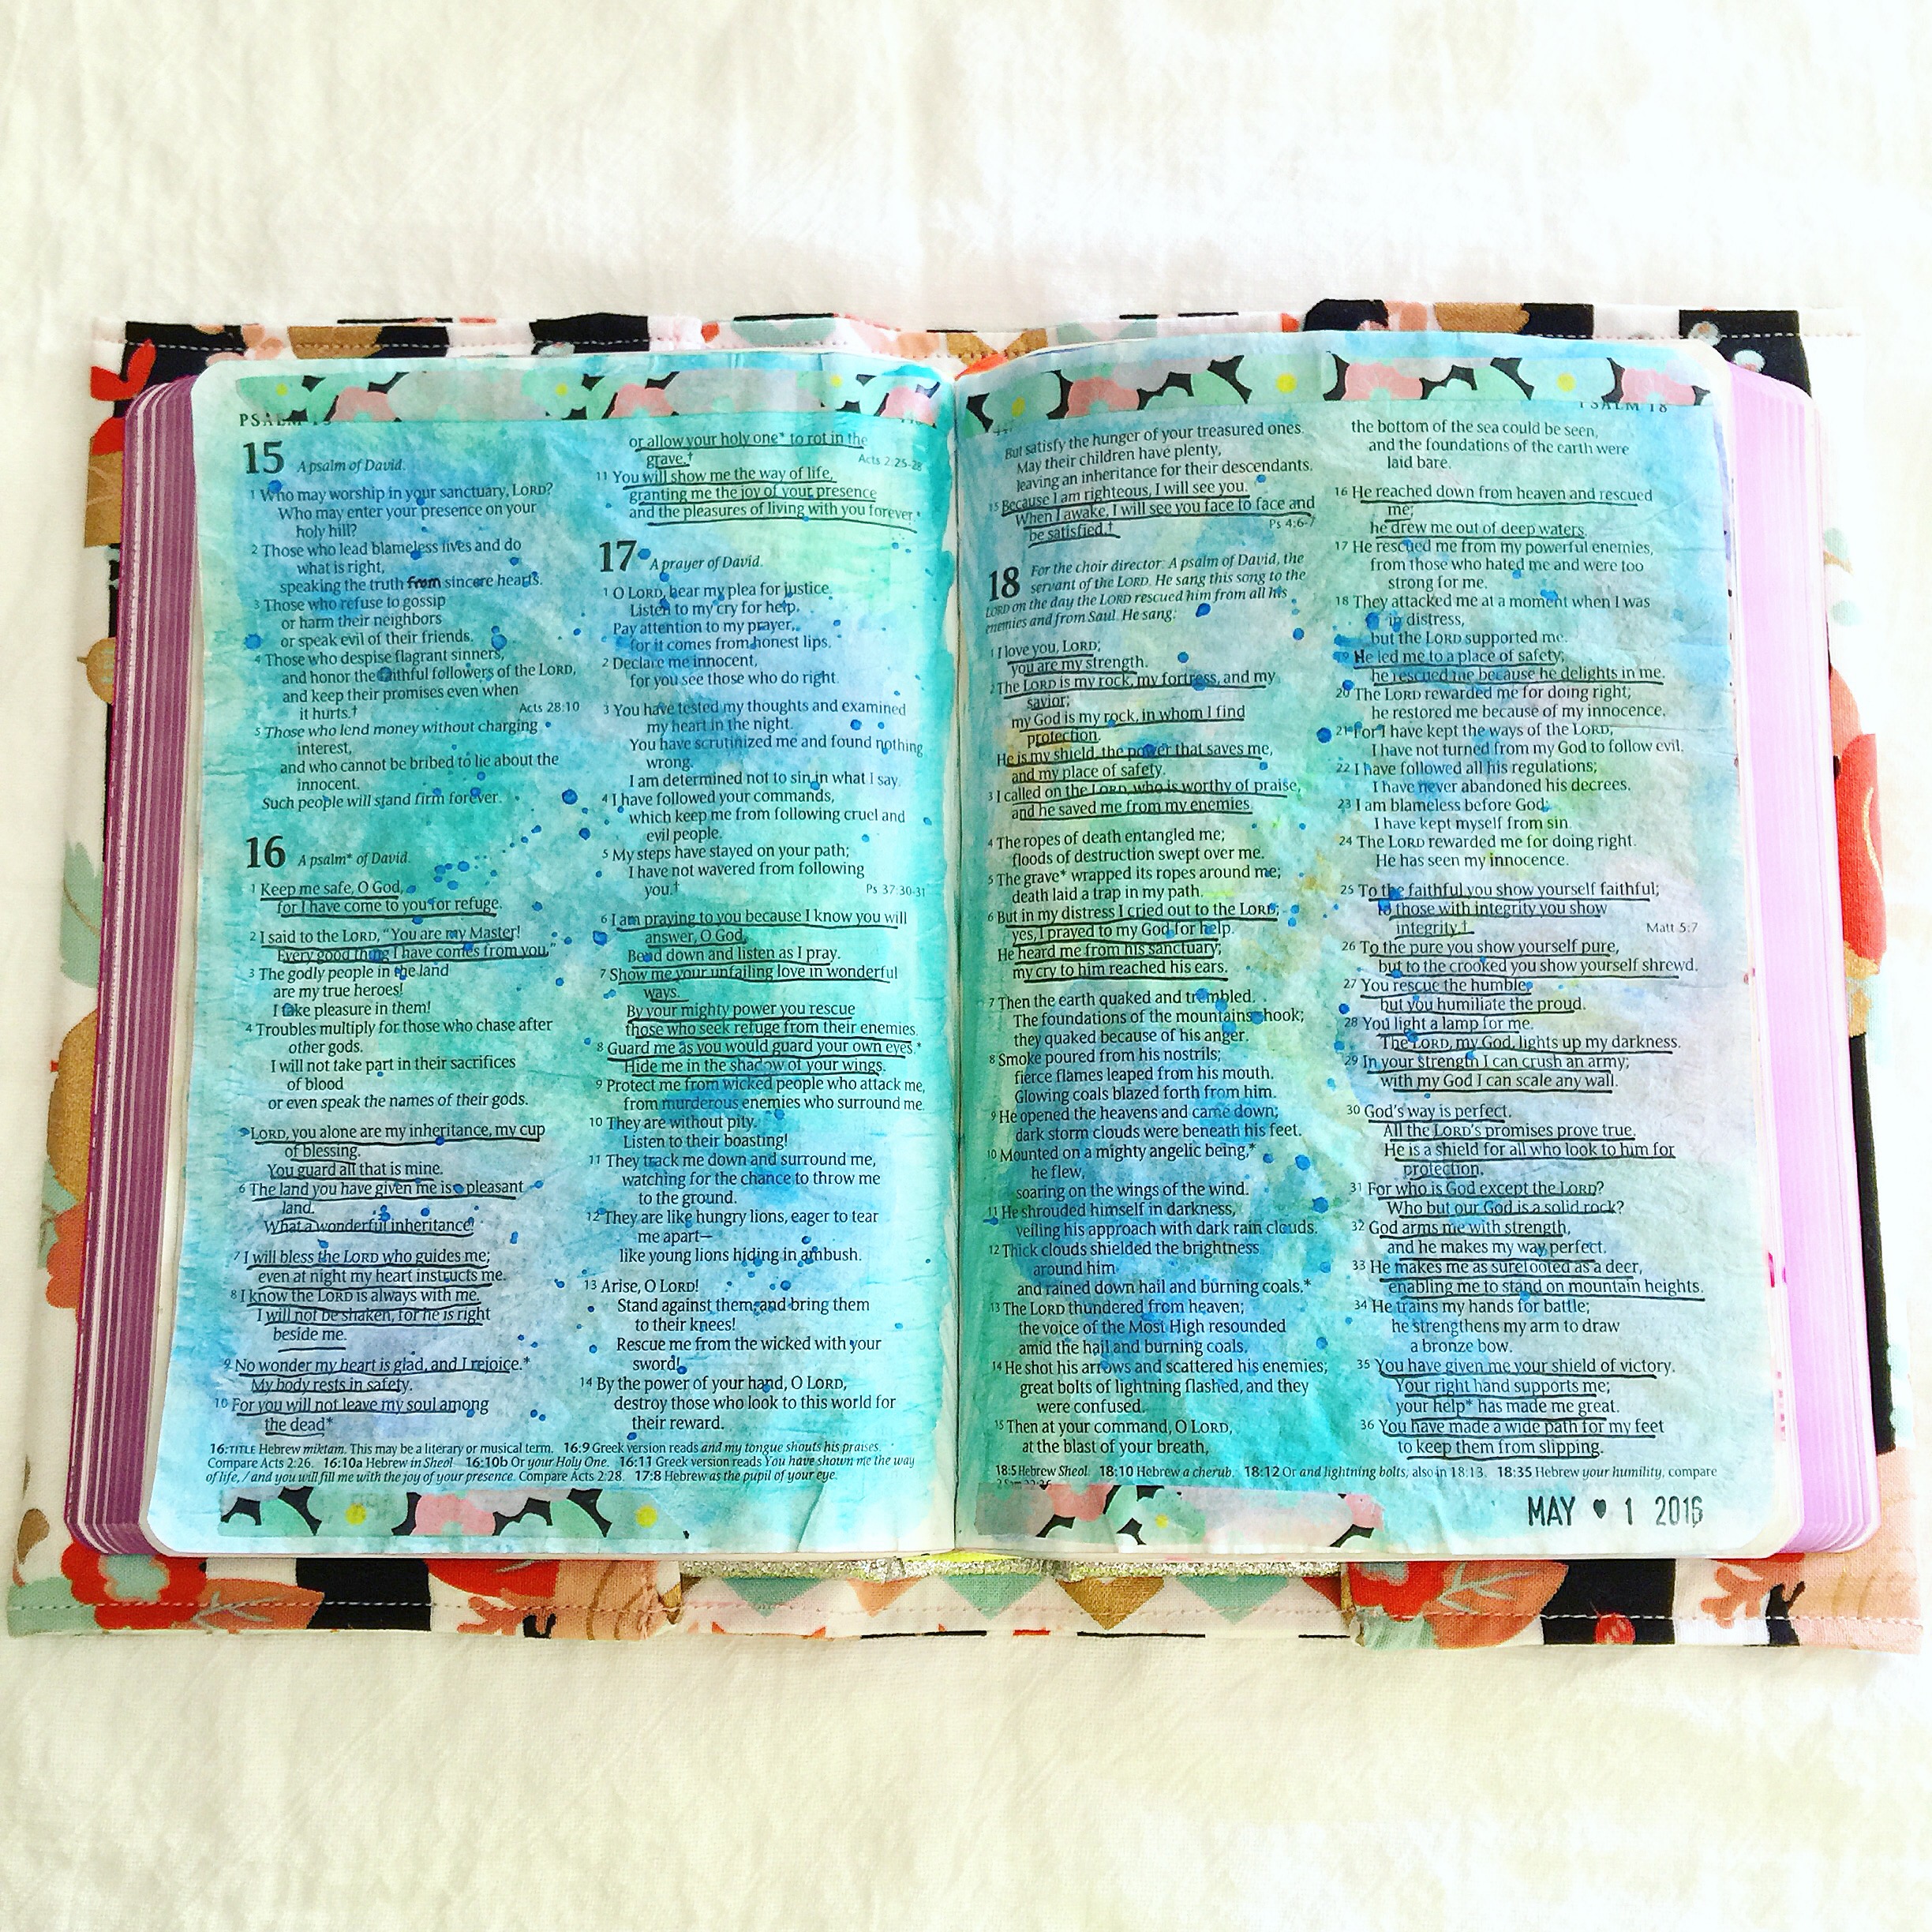 PSALM 15
15 A psalm of David.
1 Who may worship in your sanctuary, LORD?
Who may enter your presence on your
holy hill?
2 Those who lead blameless lives and do
what is right,
speaking the truth from sincere hearts.
3 Those who refuse to gossip
or harm their neighbors
or speak evil of their friends.
4 Those who despise flagrant sinners,
and honor the faithful followers of the LORD,
and keep their promises even when
it hurts.† Acts 28:10
5 Those who lend money without charging
interest,
and who cannot be bribed to lie about the
innocent.
Such people will stand firm forever.
16 A psalm* of David.
1 Keep me safe, O God,
for I have come to you for refuge.
2 I said to the LORD, “You are my Master!
Every good thing I have comes from you.”
3 The godly people in the land
are my true heroes!
I take pleasure in them!
4 Troubles multiply for those who chase after
other gods.
I will not take part in their sacrifices
of blood
or even speak the names of their gods.
LORD, you alone are my inheritance, my cup
of blessing.
You guard all that is mine.
6 The land you have given me is a pleasant
land.
What a wonderful inheritance!
7 I will bless the LORD who guides me;
even at night my heart instructs me.
8 I know the LORD is always with me.
I will not be shaken, for he is right
beside me.
9 No wonder my heart is glad, and I rejoice.*
My body rests in safety.
10 For you will not leave my soul among
the dead*
or allow your holy one* to rot in the
grave.† Acts 2:25-28
11 You will show me the way of life,
granting me the joy of your presence
and the pleasures of living with you forever.*
17 A prayer of David.
1 O LORD, hear my plea for justice.
Listen to my cry for help.
Pay attention to my prayer,
for it comes from honest lips.
2 Declare me innocent,
for you see those who do right.
3 You have tested my thoughts and examined
my heart in the night.
You have scrutinized me and found nothing
wrong.
I am determined not to sin in what I say.
4 I have followed your commands,
which keep me from following cruel and
evil people.
5 My steps have stayed on your path;
I have not wavered from following
you.† Ps 37:30-31
6 I am praying to you because I know you will
answer, O God.
Bend down and listen as I pray.
7 Show me your unfailing love in wonderful
ways.
By your mighty power you rescue
those who seek refuge from their enemies.
8 Guard me as you would guard your own eyes.*
Hide me in the shadow of your wings.
9 Protect me from wicked people who attack me,
from murderous enemies who surround me.
10 They are without pity.
Listen to their boasting!
11 They track me down and surround me,
watching for the chance to throw me
to the ground.
12 They are like hungry lions, eager to tear
me apart—
like young lions hiding in ambush.
13 Arise, O LORD!
Stand against them, and bring them
to their knees!
Rescue me from the wicked with your
sword!
14 By the power of your hand, O LORD,
destroy those who look to this world for
their reward.
16:TITLE Hebrew miktam. This may be a literary or musical term. 16:9 Greek version reads and my tongue shouts his praises.
Compare Acts 2:26. 16:10a Hebrew in Sheol. 16:10b Or your Holy One. 16:11 Greek version reads You have shown me the way
of life, / and you will fill me with the joy of your presence. Compare Acts 2:28. 17:8 Hebrew as the pupil of your eye.
PSALM 18
But satisfy the hunger of your treasured ones.
May their children have plenty,
leaving an inheritance for their descendants.
15 Because I am righteous, I will see you.
When I awake, I will see you face to face and
be satisfied.† Ps 4:6-7
18 For the choir director: A psalm of David, the
servant of the LORD. He sang this song to the
LORD on the day the LORD rescued him from all his
enemies and from Saul. He sang:
1 I love you, LORD;
you are my strength.
2 The LORD is my rock, my fortress, and my
savior;
my God is my rock, in whom I find
protection.
He is my shield, the power that saves me,
and my place of safety.
3 I called on the LORD, who is worthy of praise,
and he saved me from my enemies.
4 The ropes of death entangled me;
floods of destruction swept over me.
5 The grave* wrapped its ropes around me;
death laid a trap in my path.
6 But in my distress I cried out to the LORD;
yes, I prayed to my God for help.
He heard me from his sanctuary;
my cry to him reached his ears.
7 Then the earth quaked and trembled.
The foundations of the mountains shook;
they quaked because of his anger.
8 Smoke poured from his nostrils;
fierce flames leaped from his mouth.
Glowing coals blazed forth from him.
9 He opened the heavens and came down;
dark storm clouds were beneath his feet.
10 Mounted on a mighty angelic being,*
he flew,
soaring on the wings of the wind.
11 He shrouded himself in darkness,
veiling his approach with dark rain clouds.
12 Thick clouds shielded the brightness
around him
and rained down hail and burning coals.*
13 The LORD thundered from heaven;
the voice of the Most High resounded
amid the hail and burning coals.
14 He shot his arrows and scattered his enemies;
great bolts of lightning flashed, and they
were confused.
15 Then at your command, O LORD,
at the blast of your breath,
the bottom of the sea could be seen,
and the foundations of the earth were
laid bare.
16 He reached down from heaven and rescued
me;
he drew me out of deep waters.
17 He rescued me from my powerful enemies,
from those who hated me and were too
strong for me.
18 They attacked me at a moment when I was
in distress,
but the LORD supported me.
19 He led me to a place of safety;
he rescued me because he delights in me.
20 The LORD rewarded me for doing right;
he restored me because of my innocence.
21 For I have kept the ways of the LORD;
I have not turned from my God to follow evil.
22 I have followed all his regulations;
I have never abandoned his decrees.
23 I am blameless before God;
I have kept myself from sin.
24 The LORD rewarded me for doing right.
He has seen my innocence.
25 To the faithful you show yourself faithful;
to those with integrity you show
integrity.† Matt 5:7
26 To the pure you show yourself pure,
but to the crooked you show yourself shrewd.
27 You rescue the humble,
but you humiliate the proud.
28 You light a lamp for me.
The LORD, my God, lights up my darkness.
29 In your strength I can crush an army;
with my God I can scale any wall.
30 God's way is perfect.
All the LORD's promises prove true.
He is a shield for all who look to him for
protection.
31 For who is God except the LORD?
Who but our God is a solid rock?
32 God arms me with strength,
and he makes my way perfect.
33 He makes me as surefooted as a deer,
enabling me to stand on mountain heights.
34 He trains my hands for battle;
he strengthens my arm to draw
a bronze bow.
35 You have given me your shield of victory.
Your right hand supports me;
your help* has made me great.
36 You have made a wide path for my feet
to keep them from slipping.
18:5 Hebrew Sheol. 18:10 Hebrew a cherub. 18:12 Or and lightning bolts; also in 18:13. 18:35 Hebrew your humility; compare
MAY ♥ 1 2016